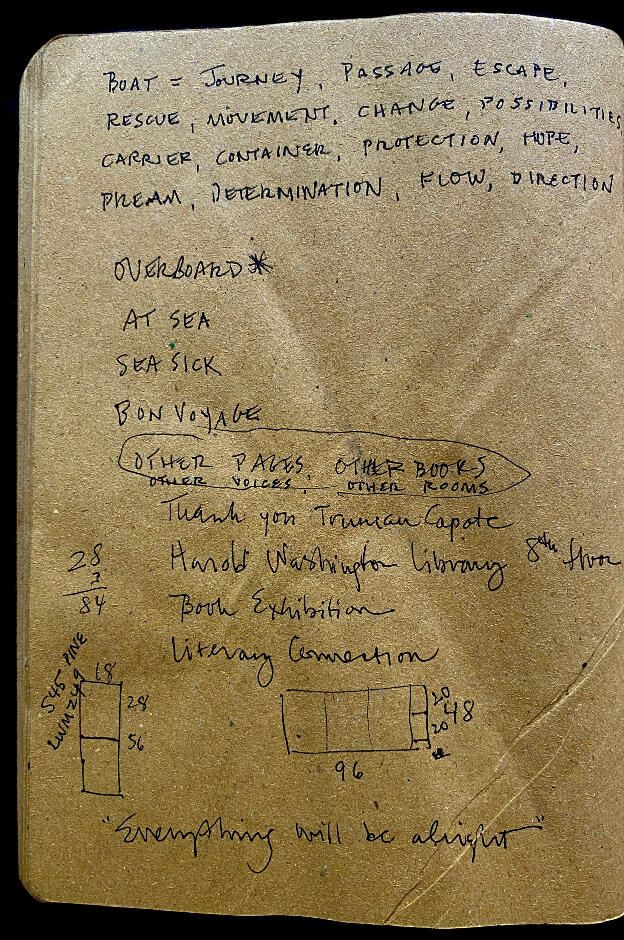 BOAT = JOURNEY, PASSAGE, ESCAPE,
RESCUE, MOVEMENT, CHANGE, POSSIBILITIES
CARRIER, CONTAINER, PROTECTION, HOPE,
DREAM, DETERMINATION, FLOW, DIRECTION
OVERBOARD*
AT SEA
SEA SICK
BON VOYAGE
OTHER PAGES, OTHER BOOKS
OTHER VOICES, OTHER ROOMS
Thank you Truman Capote
Harold Washington Library 8th floor
Book Exhibition
Literary Connection
28
3
84
545 PINE
18
28
56
20
48
20
96
"Everything will be alright"